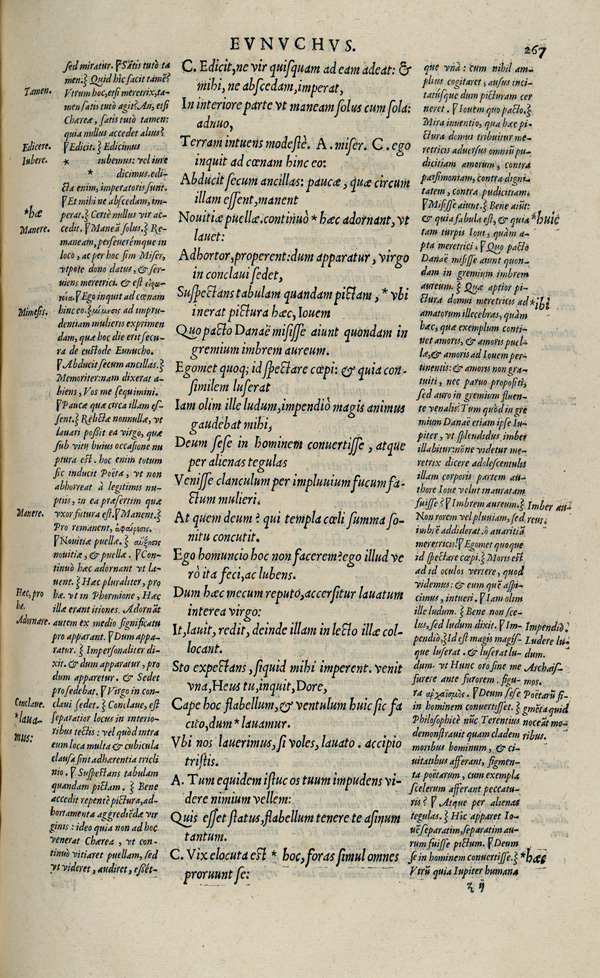 EVNVCHVS.
267
sed miratur. ꝟ Satis tutò ta
men.ꝣ Quid hîc facit tamē?
Vtrum hoc, etsi meretrix, ta-
men satis tutò agit? An, etsi
Chærea, satis tutò tamen:
quia nullus accedet alius?
ꝟ Edicit. ꝣ Edicimus
* iubemus: vel iure
* dicimus. edi-
cta enim, imperatoris sunt.
ꝟ Et mihi ne abscedam, im-
perat.ꝣ Certè nullus vir ac-
cedit. ꝟ Maneā solus.ꝣ Re-
maneam, perseuerémque in
loco, ac per hoc sim Miser,
vtpote dono datus, & ser-
uiens meretrici. & est
ꝟ Ego inquit ad cœnam
hinc eo. ad impru-
dentiam mulieris exprimen
dam, quæ hoc die erit secu-
ra de custode Eunucho.
ꝟ Abducit secum ancillas.ꝣ
Memoriter: nam dixerat a-
biens, Vos me sequimini.
ꝟ Paucæ quæ circa illam es-
sent.ꝣ Relictæ nonnullæ, vt
lauari possit ea virgo, quæ
sub viri huius occasione nu
ptura est. hoc enim totum
sic inducit Poëta, vt non
abhorreat à legitimis nu-
ptiis, in ea præsertim quæ
vxor futura est. ꝟ Manent.ꝣ
Pro remanent,
ꝟ Nouitiæ puellæ.ꝣ
nouitiæ, & puellæ. ꝟ Con-
tinuò hæc adornant vt la-
uent. ꝣ Hæc pluraliter, pro
hæ. vt in Phormione, Hæc
illæ erant itiones. Adornāt
autem ex medio significatu
pro apparant. ꝟ Dum appa-
ratur. ꝣ Impersonaliter di-
xit. & dum apparatur, pro
dum apparetur. & Sedet
pro sedebat. ꝟ Virgo in con-
claui sedet. ꝣ Conclaue, est
separatior locus in interio-
ribus tectis: vel quòd intra
eum loca multa & cubicula
clausa sint adhærentia tricli
nio. ꝟ Suspectans tabulam
quandam pictam. ꝣ Bene
accedit repentè pictura, ad-
hortamenta aggrediēdæ vir
ginis: ideo quia non ad hoc
venerat Chærea, vt con-
tinuò vitiaret puellam, sed
vt videret, audiret, essét-
Tamen.
Edicere.
Iubere.
*hæ
Manere.
Mimesis.
Manere.
Hæc, pro
hæ.
Adornare.
Conclaue.
*laua
mus:
C. Edicit, ne vir quisquam ad eam adeat: &
mihi, ne abscedam, imperat,
In interiore parte vt maneam solus cum sola:
adnuo,
Terram intuens modestè. A. miser. C. ego
inquit ad cœnam hinc eo:
Abducit secum ancillas: paucæ, quæ circum
illam essent, manent
Nouitiæ puellæ. continuò * hæc adornant, vt
lauet:
Adhortor, properent: dum apparatur, virgo
in conclaui sedet,
Suspectans tabulam quandam pictam, * vbi
inerat pictura hæc, Iouem
Quo pacto Danaë misisse aiunt quondam in
gremium imbrem aureum.
Egomet quoq; id spectare cœpi: & quia con-
similem luserat
Iam olim ille ludum, impendiò magis animus
gaudebat mihi,
Deum sese in hominem conuertisse, atque
per alienas tegulas
Venisse clanculum per impluuium fucum fa-
ctum mulieri.
At quem deum? qui templa cœli summa so-
nitu concutit.
Ego homuncio hoc non facerem? ego illud ve
rò ita feci, ac lubens.
Dum hæc mecum reputo, accersitur lauatum
interea virgo:
It, lauit, redit, deinde illam in lecto illæ col-
locant.
Sto expectans, siquid mihi imperent. venit
vna, Heus tu, inquit, Dore,
Cape hoc flabellum, & ventulum huic sic fa
cito, dum * lauamur.
Vbi nos lauerimus, si voles, lauato. accipio
tristis.
A. Tum equidem istuc os tuum impudens vi-
dere nimium vellem:
Quis esset status, flabellum tenere te asinum
tantum.
C. Vix elocuta est * hoc, foras simul omnes
proruunt se:
que vnà: cum nihil am-
plius cogitaret, ausus inci-
tatúsque dum picturam cer
neret. ꝟ Iouem quo pacto.ꝣ
Mira inuentio, qua hæc pi-
ctura domui tribuitur me-
retricis aduersus omniū pu-
dicitiam amorum, contra
parsimoniam, contra digni
tatem, contra pudicitiam.
ꝟ Misisse aiunt.ꝣ Bene aiūt:
& quia fabula est, & quia
tam turpis Ioui, quàm a-
pta meretrici. ꝟ Quo pacto
Danaē misisse aiunt quon-
dam in gremium imbrem
aureum. ꝣ Quæ aptior pi-
ctura domui meretricis ad
amatorum illecebras, quàm
hæc, quæ exemplum conti-
net amoris, & amoris puel-
læ, & amoris ad Iouem per-
tinentis: & amoris non gra-
tuiti, nec paruo propositi,
sed auro in gremium fluen-
te venalis? Tum quòd in gre
mium Danaē etiam ipse Iu-
piter, vt splendidus imber
illabitur: nōne videtur me-
retrix dicere adolescentulis
illam corporis partem au-
thore Ioue velut inauratam
fuisse? ꝟ Imbrem aureum.ꝣ
Non rorem vel pluuiam, sed
imbrē addiderat. ô auaritiā
meretricis! ꝟ Egomet quoque
id spectare cœpi.ꝣ Moris est
ad id oculos vertere, quod
videmus: & eum quē aspi-
cimus, intueri. ꝟ Iam olim
ille ludum. ꝣ Bene non sce-
lus, sed ludum dixit. ꝟ Im-
pendiò.ꝣ Id est magis magis-
que luserat. & luserat lu-
dum. vt Hunc oro sine me
furere ante furorem. figu-
ra ꝟ Deum sese
in hominem conuertisset.ꝣ
Philosophicè nūc Terentius
demonstrauit quam cladem
moribus hominum, & ci-
uitatibus afferant, figmen-
ta poëtarum, cum exempla
scelerum afferant peccatu-
ris? ꝟ Atque per alienas
tegulas. ꝣ Hîc apparet Io-
uē separatim, separatim au-
rum fuisse pictum. ꝟ Deum
se in hominem conuertisse.ꝣ
Vtrū quia Iupiter humana
*huic
*ibi
Imber au-
reus.
Impendiò.
Ludere lu-
dum.
Archais-
mos.
Poëtarū fi-
gmēta quid
noceāt mo-
ribus.
*hæc